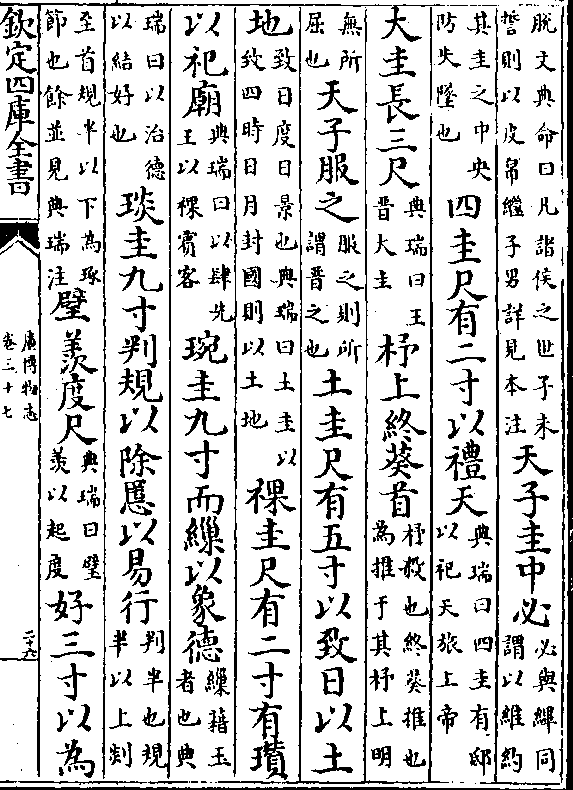 脱文典命曰凡諸侯之世子未誓則以皮帛繼子男詳見本注天子圭中必必與縪同謂以維約
其圭之中央防失墜也四圭尺有二寸以禮天典瑞曰四圭有邸以祀天旅上帝
大圭長三尺典瑞曰王晉大圭杼上終葵首杼殺也終葵推也為推于其杼上明
無所屈也天子服之服之則所謂晉之也土圭尺有五寸以致日以土
地致日度日景也典瑞曰土圭以致四時日月封國則以土地祼圭尺有二寸有瓚
以祀廟典瑞曰以肆先王以祼賓客琬圭九寸而繅以象德繅藉玉者也典
瑞曰以治德以結好也琰圭九寸判規以除慝以易行判半也規半以上剡
至首規半以下為琢節也餘並見典瑞注璧羨度尺典瑞曰璧羨以起度好三寸以為
欽定四庫全書
廣博物志
卷三十七